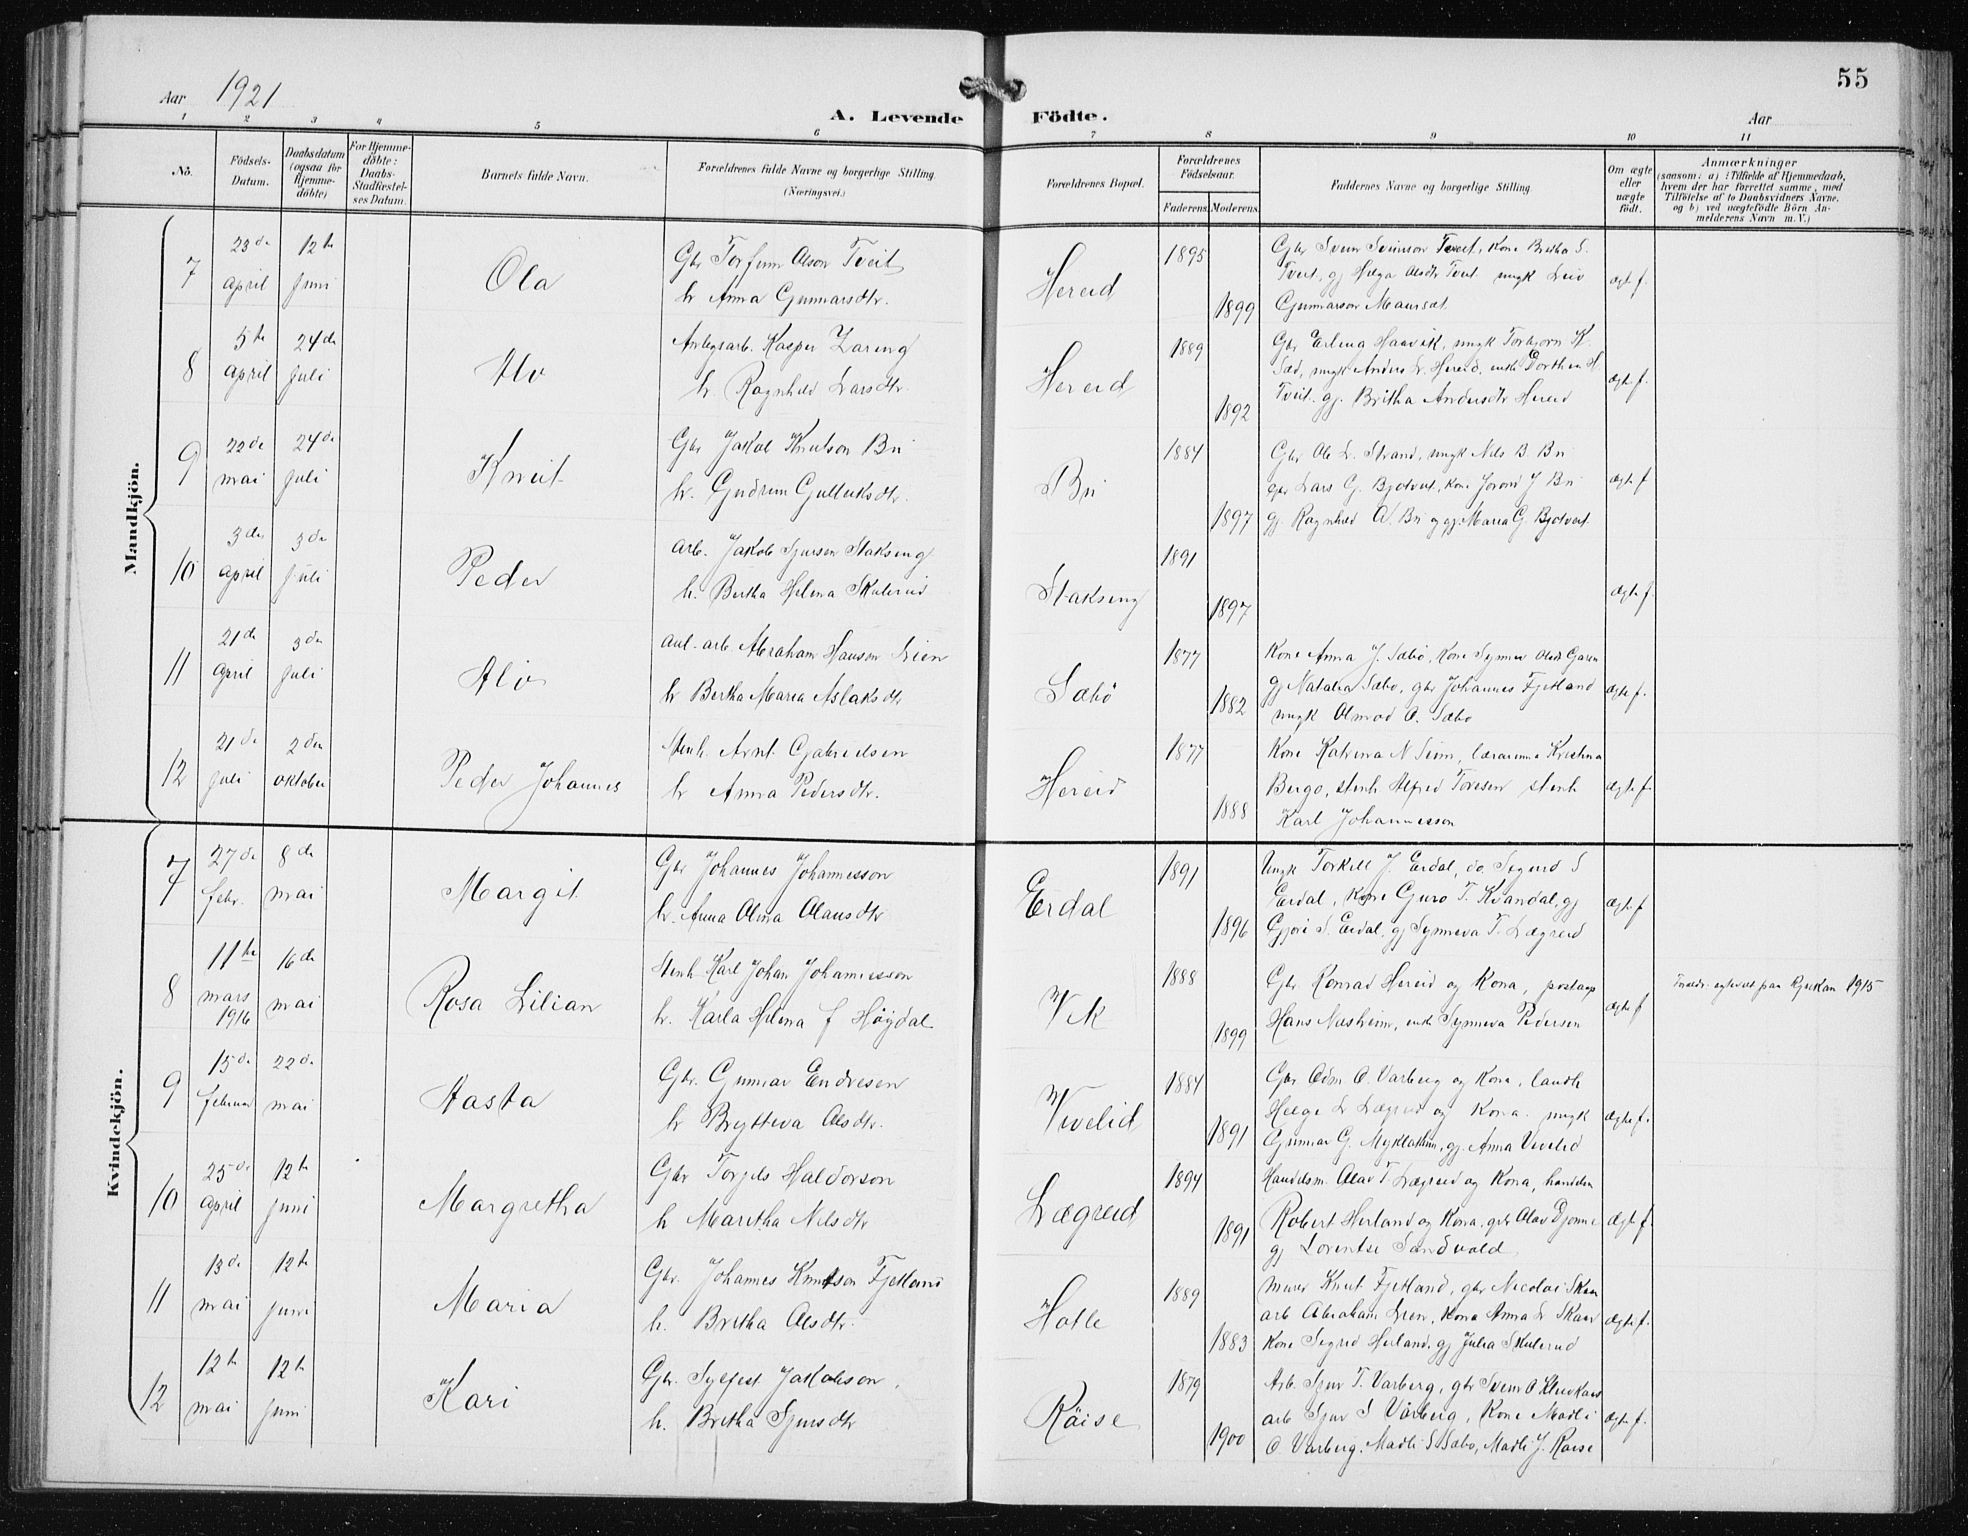 55
Aar 1921
A. Levende Födte.
Aar
1 2 3 4 5 6 7 8 9 10 11
No.
Födsels-Datum.
Daabsdatum (ogsaa for Hjemme-döbte)
For Hjemme-döbte: Daabs-Stadfæstel-ses Datum.
Barnets fulde Navn.
Forældrenes fulde Navne og borgerlige Stilling (Næringsvei.)
Forældrenes Bopæl.
Forældrenes Födselsaar.
Faderens. Moderens.
Faddernes Navne og borgerlige Stilling
Om ægte eller uægte födt.
Anmærkninger
(saasom: a) i Tilfælde af Hjemmedaab, hvem der har forrettet samme, med Tilföielse af to Daabsvidners Navne, og b) ved uægtefödte Börn An-melderens Navn m. V.)
Mandkjön.
7 23de april 12te juni Ola
Gbr Torfinn Olson Tveit
h Anna Gunnarsdtr.
Hereid 1895 1899
Gbr Svein Sveinson Tveit, Kone Britha S.
Tveit, gj Helga Olsdtr Tveit ungk Leiv
Gunnarson Maursæt
ægte f.
8 5te april 24de juli Alv
Anlegsarb. Kasper Zaring
h. Ragnhild Larsdtr.
Hereid 1889 1892
Gbr Erling Haavik, ungk Torbjørn K.
Sæd, ungk Anders L. Hereid, enke Dorthea H
Tveit. gj. Britha Andersdtr Hereid
ægte f.
9 22de mai 24de juli Knut
Gbr Jakob Knutson Bu
h. Gudrun Gulleiksdtr.
Bu 1884 1897
Gbr Ole L. Strand, ungk Nils B. Bu
gbr Lars G. Bjotveit, Kone Jorond J Bu
gj. Ragnhild A. Bu og gj. Maria G. Bjotveit
ægte f
10 3die april 3die juli Peder
Arb. Jakob Sjurson Stakseng
h. Bertha Helena Skulerud
Stakseng 1891 1897
ægte f.
11 21de april 3die juli Alv
Anl. arb. Abraham Hanson Lien
h Bertha Maria Aslaksdtr
Sæbø 1877 1882
Kone Anna J. Sæbø, Kone Synneva Olsdtr Garen
gj Natalia Sæbø, gbr Johannes Fjetland
ungk Olmod O. Sæbø
ægte f.
12 21de juli 2den oktober Peder Johannes
Stenh. Arnt Gabrielsen
h Anna Pedersdtr.
Hereid 1877 1888
Kone Katrina N Seim, lærarinna Kristina
Bergo, stenh Alfred Toresen stenh
Karl Johannesson
ægte f.
Kvindekjön.
7 27de febr. 8de mai Margit
Gbr Johannes Johannesson
h. Anna Olina Olausdtr
Erdal 1891 1896
Ungk Torkell J. Erdal, do. Sigurd S
Erdal, Kone Guro T. Kvandal, gj
Gjøri S. Erdal, gj Synneva T. Lægreid
ægte f
8 11te mars 1916 16de mai Rosa Lilian
Stenh Karl Johan Johannesson
h. Karla Helena f Høydal
Vik 1888 1899
Gbr Konrad Hereid og Kona, postaps
Hans Næsheim, enke Synneva Pedersen
ægte f
Forældr. egteviet paa Rjukan 1915
9 15de februar 22de mai Aasta
Gbr. Gunnar Endresen
h Brytteva Olsdtr.
Vivelid 1884 1891
Gbr Odm. O. Varberg og Kona, landh
Helge L Lægreid og Kona. ungk
Gunnar G. Myklatun, gj. Anna Vivelid
ægte f.
10 25de april 12te juni Margretha
Gbr Torgils Haldorson
h Maritha Nilsdtr
Lægreid 1894 1891
Handelsm. Olav T. Lægreid og Kona, handelsm
Robert Herland og Kona, gbr Olav Djønne
gj Lorentse Sandvold
ægte f.
11 13de mai 12te juni Maria
Gbr. Johannes Knutson Fjetland
h. Britha Olsdtr.
Holle 1889 1883
Murer Knut Fjetland, gbr Nicolai Skaar
arb Abraham Lien, Kona Anna L Skaar
Kone Sigrid Herland, gj Julia Skulerud
ægte f.
12 12te mai 12te juni Kari
Gbr. Sylfest Jakobson
h. Britha Sjursdtr
Räise 1879 1900
Arb. Sjur T. Varberg, gbr Svein O
arb Sjur S Vårberg, Kone Madli
O Varberg, Madli S Sæbø, Madli J. Raise
ægte f.